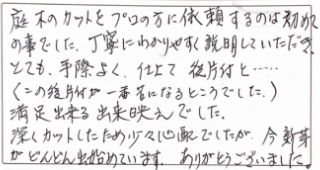 庭木のカットをプロの方に依頼するのは初めて
の事でした。丁寧にわかりやすく説明していただき
とても、手際よく、仕上て 後片付と……
(この後片付が一番苦になるところでした。)
満足出来る出来映えでした。
深くカットしたため少々心配でしたが、今新芽
がどんどん出始めています。ありがとうございました。